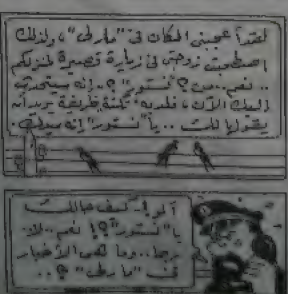 لقد أعجبني المكان في "مارلي"، ولذلك
اصطحبت زوجتي في زيارة قصيرة لمنزلكم
.. نعم.. من؟ "نستور"؟.. إنه سيتحدث
إليك الآن، فلديه نكتة طريفة يريد أن
يقولها لك... يا "نستور" إنه
آلو!.. كيف حالك
يا "نستور"؟! نعم..
.. وما هي الأخبار
في "مارلي"؟..